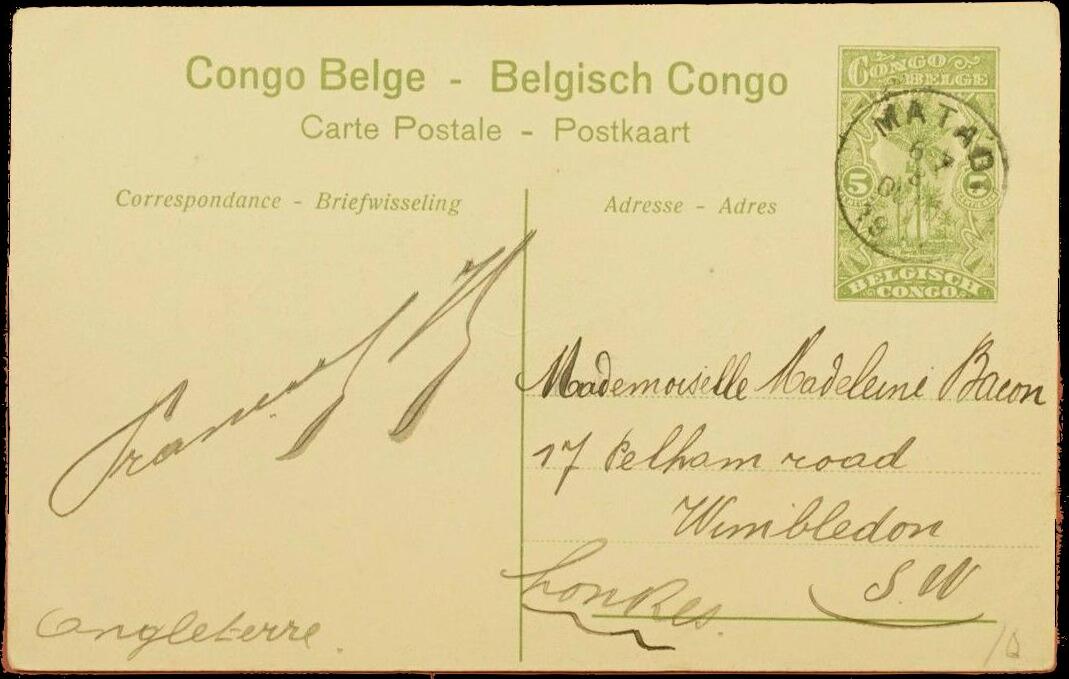 Congo Belge - Belgisch Congo
Carte Postale - Postkaart
CONGO
BELGE
MATADI
5
BELGISCH
CONGO
Correspondance - Briefwisseling
Adresse - Adres
Mademoiselle Madeleine Bacon
17 Pelham road
Wimbledon
S.W
Londres
Angleterre.